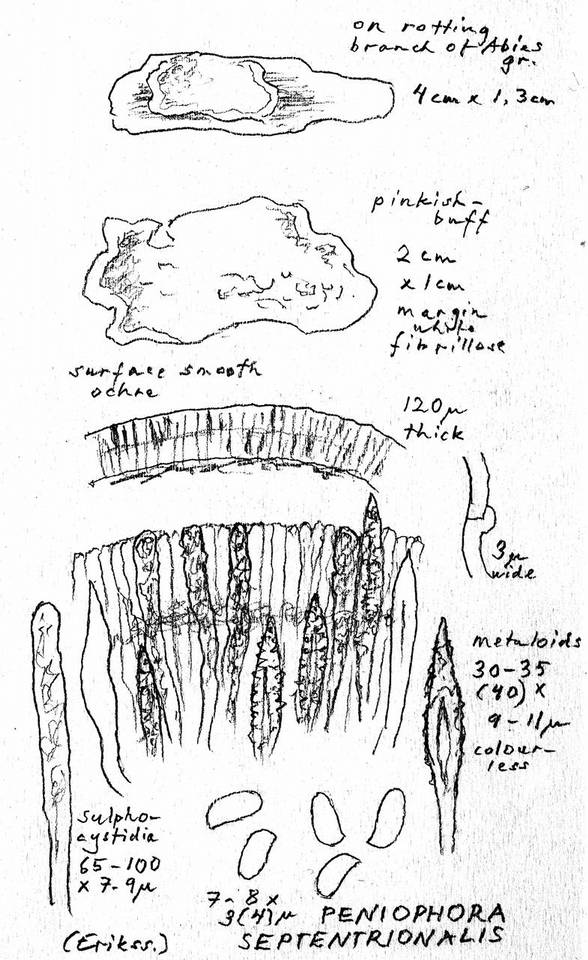 on rotting
branch of Abies
gr.
4 cm x 1,3 cm
pinkish-
buff
2 cm
x 1 cm
margin
white
fibrillose
surface smooth
ochre
120 μ
thick
3 μ
wide
metuloids
30-35
(40) x
9-11 μ
colour-
less
sulpho-
cystidia
65-100
x 7-9 μ
7-8 x
3(4) μ
(Erikss.)
PENIOPHORA
SEPTENTRIONALIS